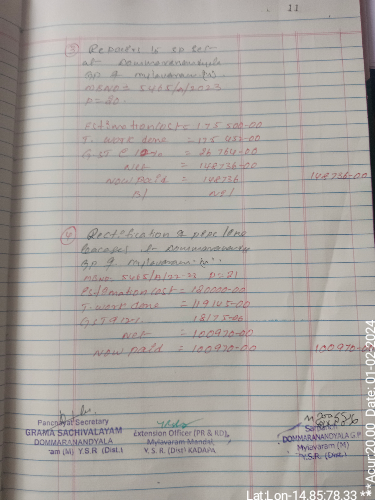 11
③ Repairs to
at Dommaranandyala
GP of Mylavaram (M).
MBNO = 5465/A/2023
P = 80.
Estimation cost = 175 500-00
T. work done =
GST @
Net = 148736-00
Now Paid = 148736
148736-00
④ Rectification of pipe line
Dommaranandyala
GP of Mylavaram "M"
MBNO: 5465/A/22-23 P=81
Estimation cost = 120000-00
T. work done = 119145-00
GST
Net = 100970-00
Now Paid = 100970-00
100970-00
Panchayat Secretary
GRAMA SACHIVALAYAM
DOMMARANANDYALA
am (M) Y.S.R (Dist.)
Extension Officer (PR & RD)
Mylavaram Mandal,
Y. S. R. (Dist) KADAPA
Sarpanch
DOMMARANANDYALA G.P
Mylavaram (M)
Y.S.R. (Dist.)
Lat:Lon-14.85:78.33 ***Acur:20.00 Date:01-02-2024